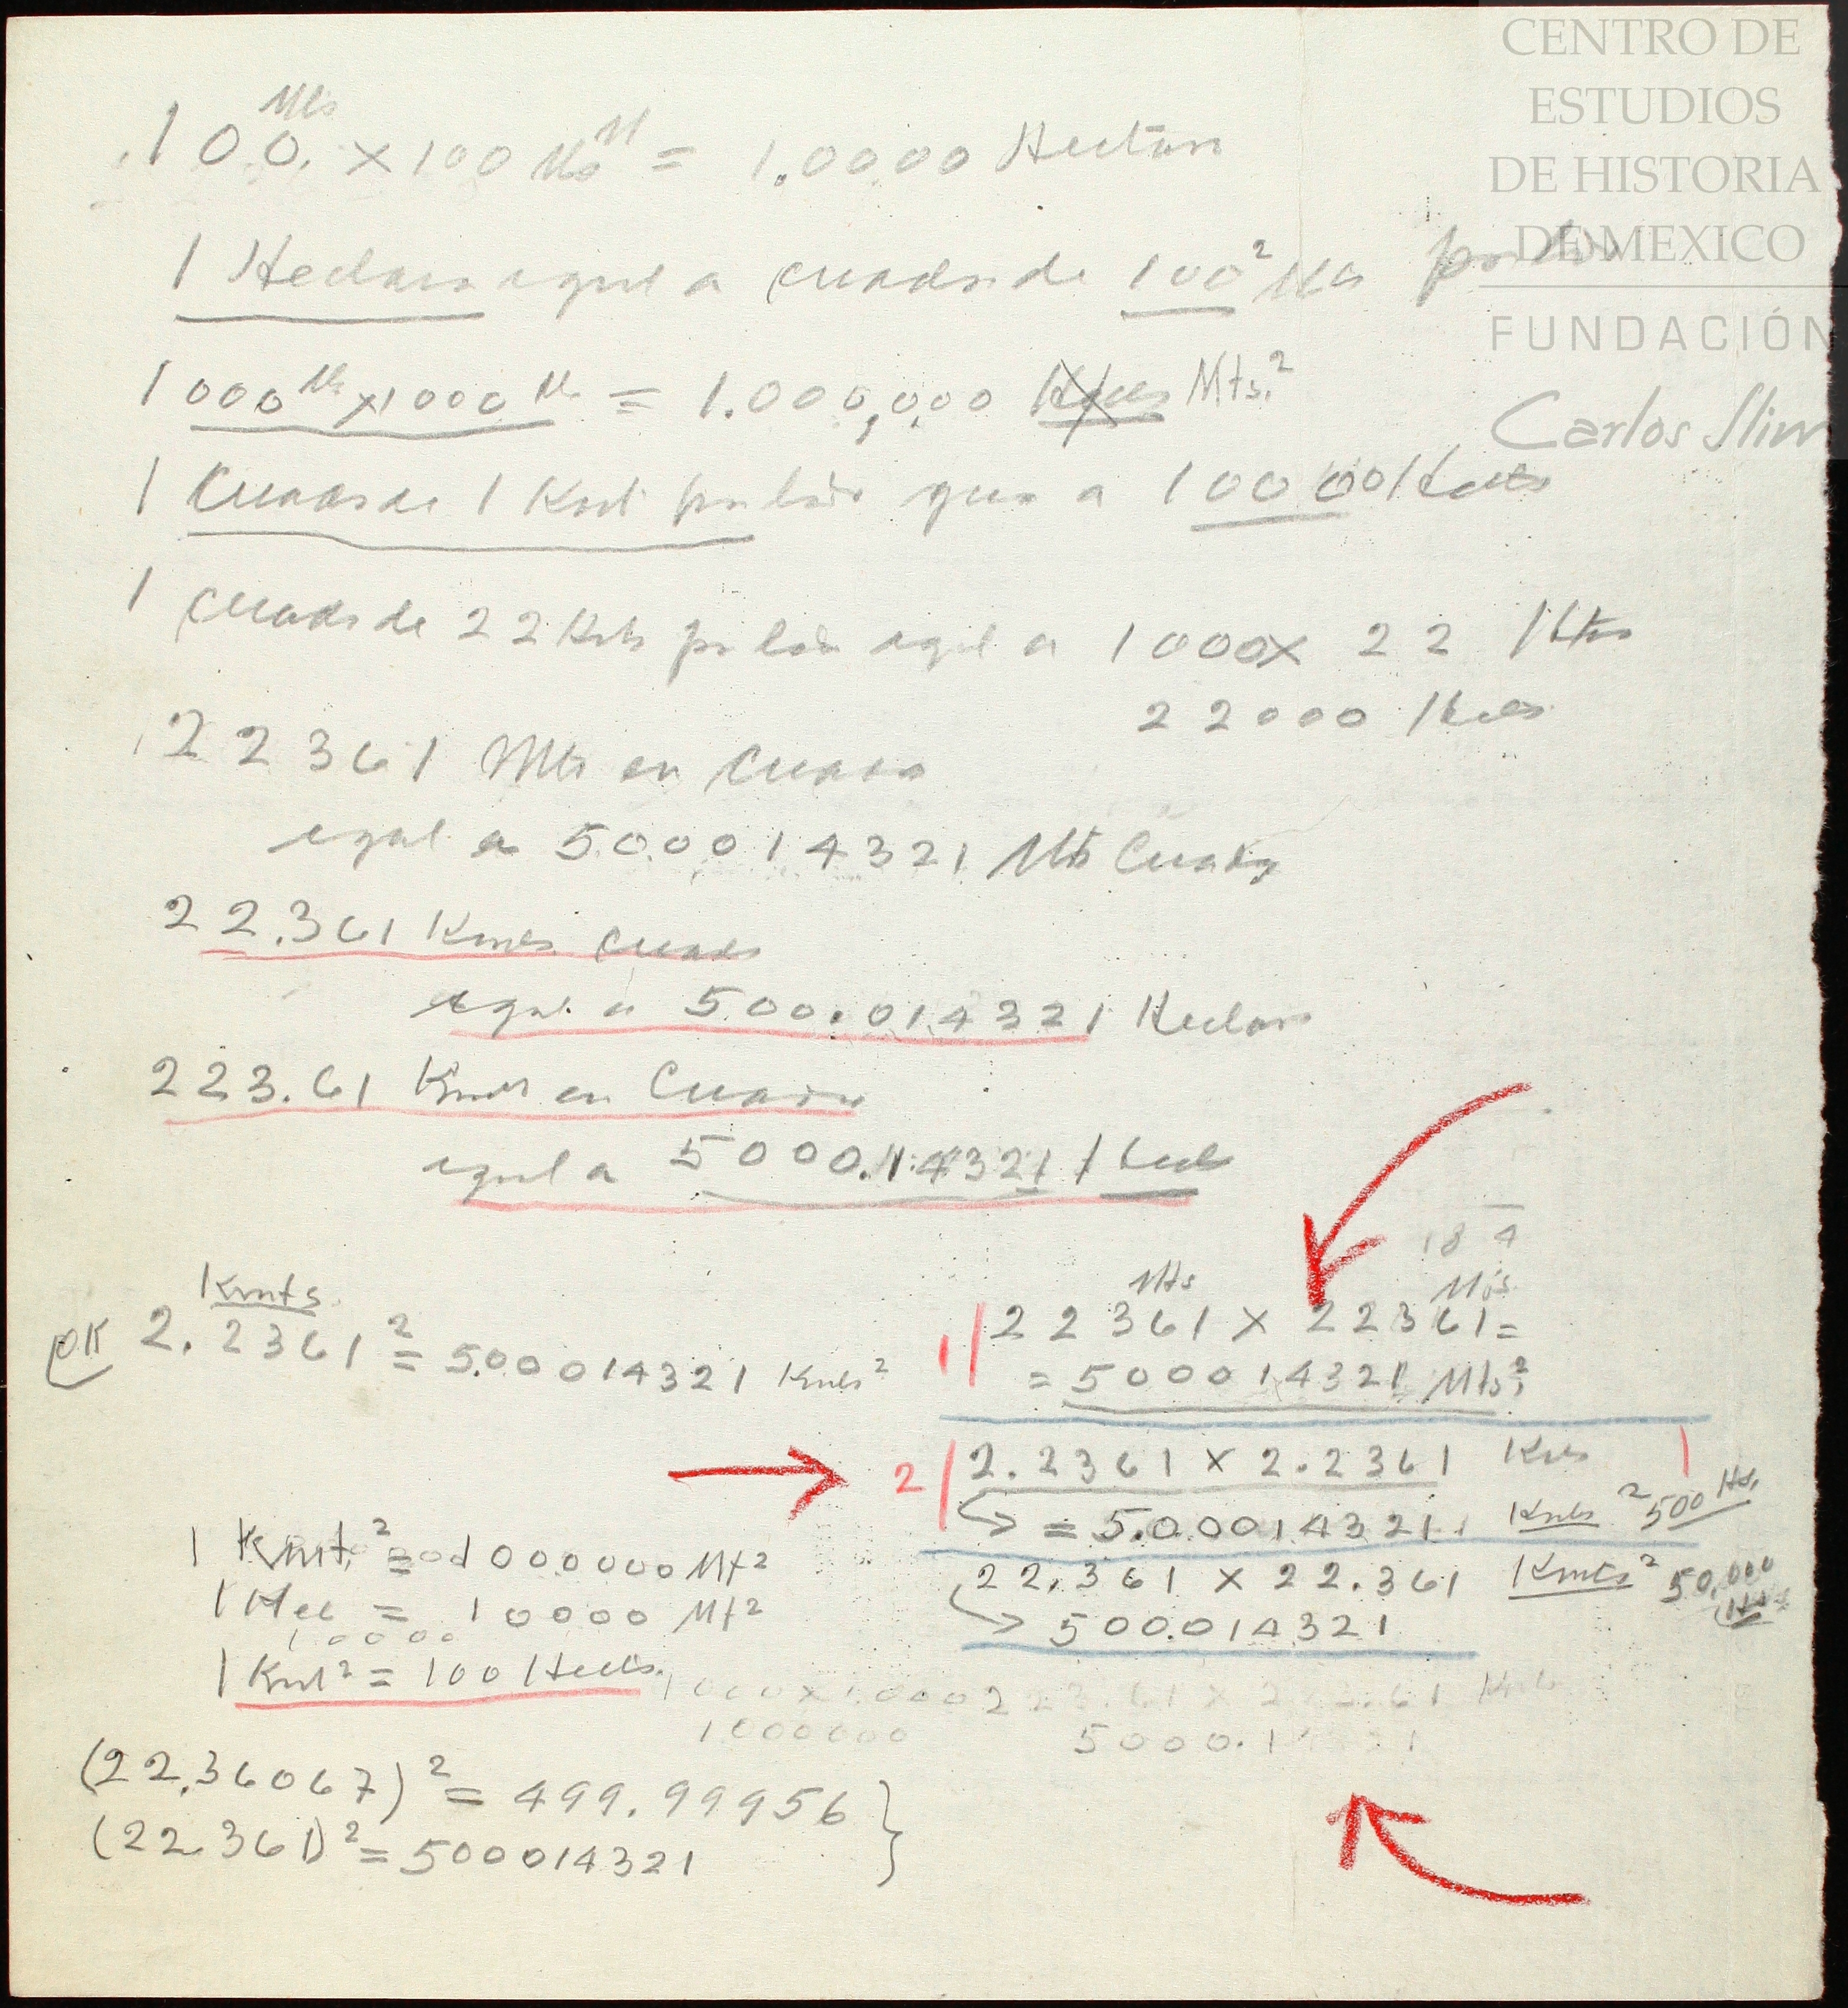 CENTRO DE
ESTUDIOS
DE HISTORIA
DE MEXICO
FUNDACIÓN
Carlos Slim
Mts
100. x 100 Mts = 1.0000 Hectara
1 Hectara igual a cuadro de 100² Mts por lado
1000 Mts x 1000 Mts = 1.000,000 Mts.²
1 Cuadro de 1 Kmt por lado a 10000 Hects
1 cuadro de 22 Kmts por lado igual a 1000 x 22 Hts
22000 Hects
22361 Mts en Cuadro
igual a 500014321 Mts Cuads
22.361 Kmts cuads
igual a 500.014321 Hectars
223.61 Kmts en Cuadro
igual a 5000.14321 Hect
18 4
Kmts
OK 2.2361² = 5.00014321 Kmts²
Mts Mts
1 22361 x 22361 =
= 500014321 Mts²
2 2.2361 x 2.2361 Kmts
= 5.00014321 Kmts² 500 Hts.
22.361 x 22.361 Kmts² 50,000 Hts
500.014321
1 Kmt.² = 1000000 Mt²
1 Hec = 10000 Mt²
10000
1 Kmt² = 100 Hects.
1000 x 1000
1000000
223.61 x 223.61 Kmts
5000.1
(22.36067)² = 499.99956
(22.361)² = 500014321